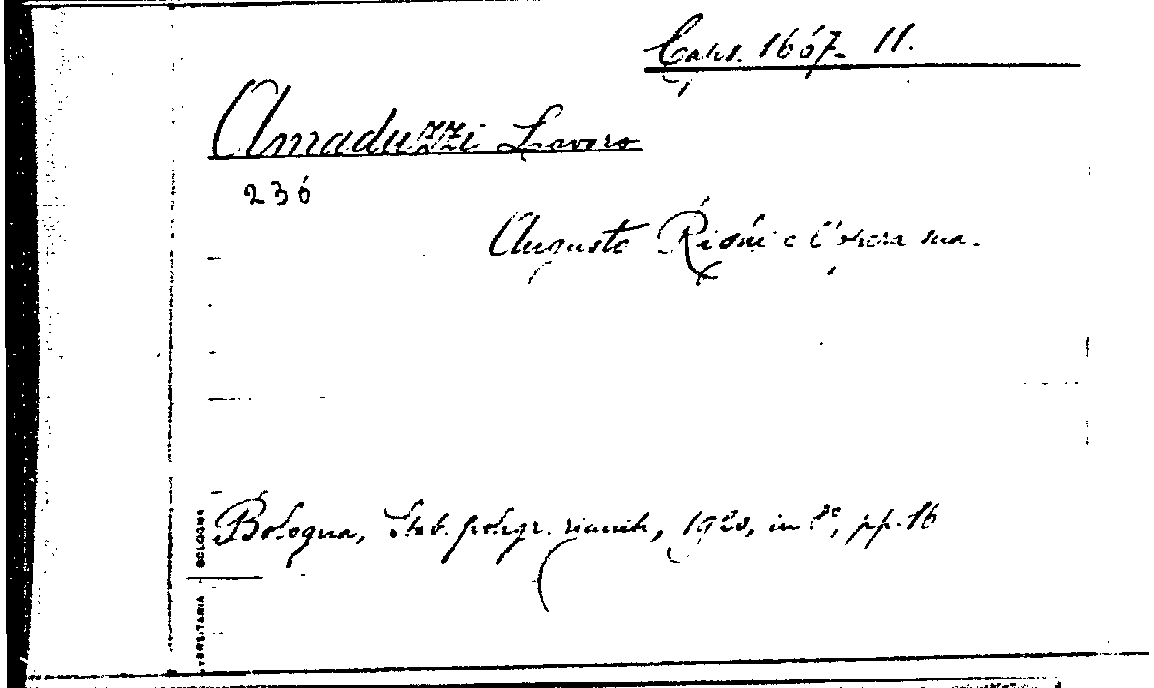 Caps. 1667- 11.
Amaduzzi Lavoro
236
Augusto Righi e l'opera sua.
Bologna, Stab. poligr. riuniti, 1920, in 8°, pp. 16
BOLOGNA